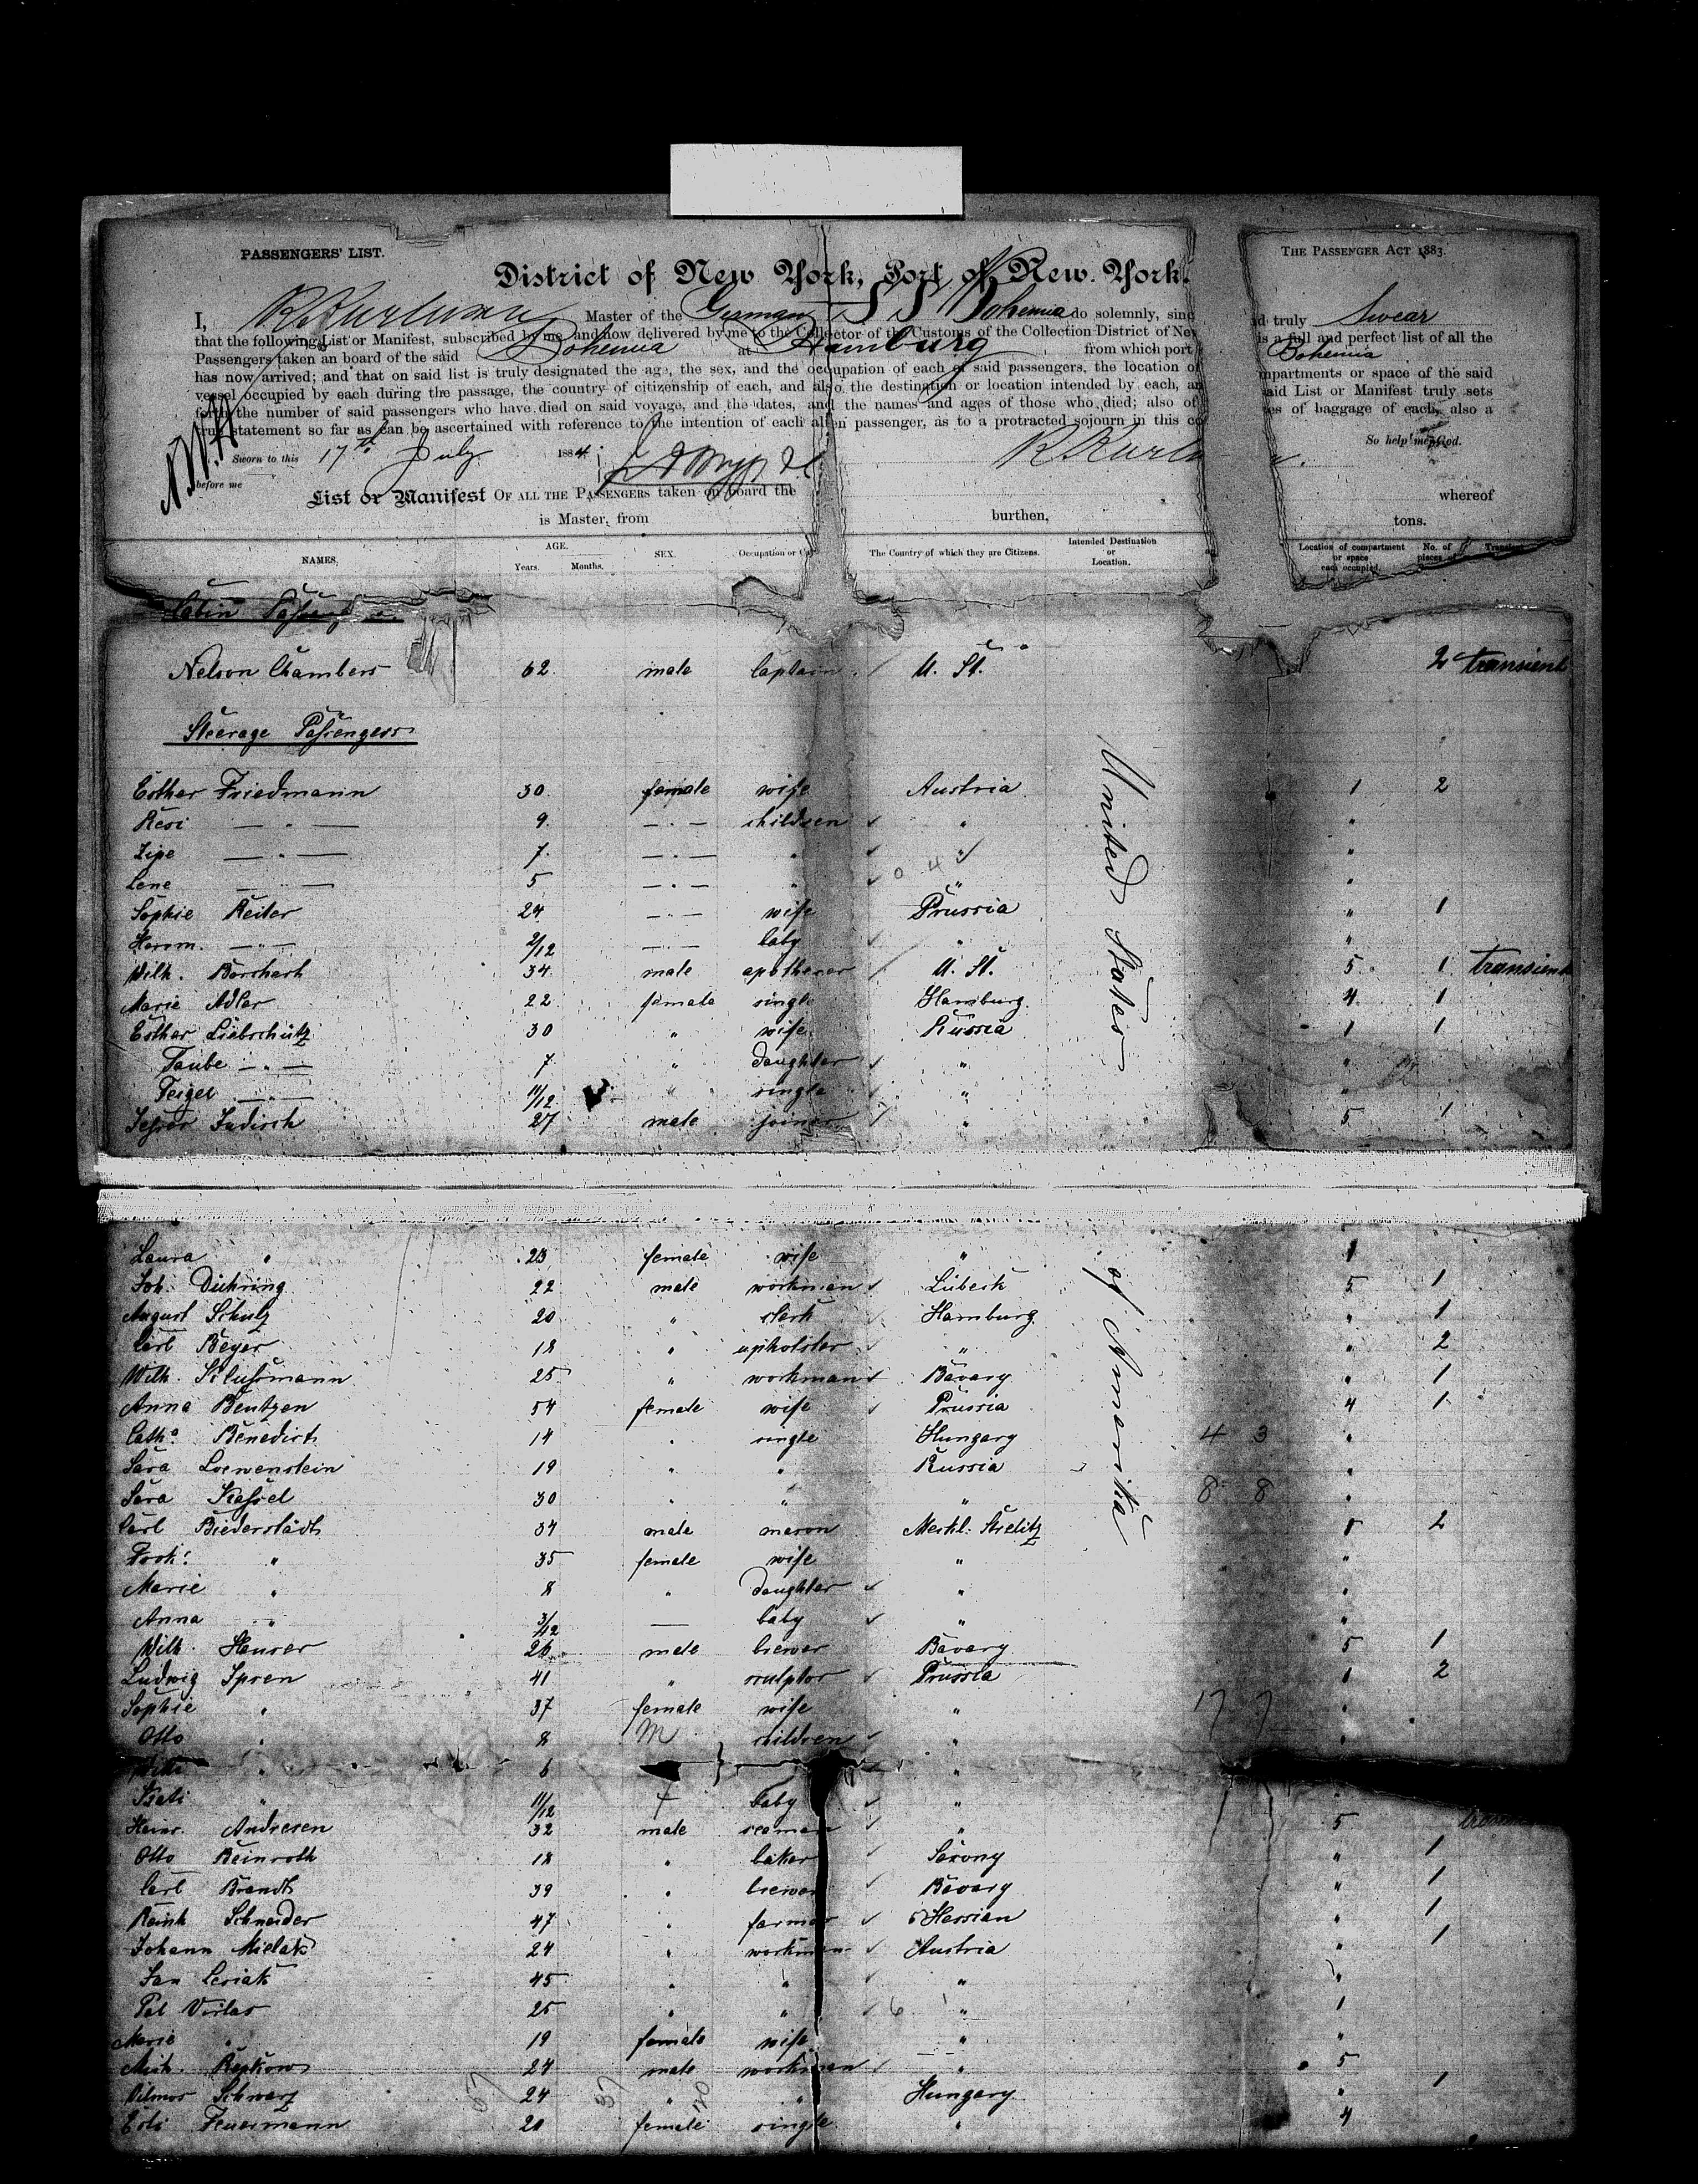 PASSENGERS' LIST. THE PASSENGER ACT 1883.
District of New York, Port of New York.
I, Master of the German SS Bohemia do solemnly, sinc d truly Swear
that the following List or Manifest, subscribed by me, and now delivered by me to the Collector of the Customs of the Collection District of Ne is a full and perfect list of all the
Passengers taken on board of the said Bohemia at Hamburg from which port Bohemia
has now arrived; and that on said list is truly designated the age, the sex, and the occupation of each of said passengers, the location of mpartments or space of the said
vessel occupied by each during the passage, the country of citizenship of each, and also, the destination or location intended by each, an aid List or Manifest truly sets
forth the number of said passengers who have died on said voyage, and the dates, and the names and ages of those who died; also of es of baggage of each, also a
true statement so far as can be ascertained with reference to the intention of each alien passenger, as to a protracted sojourn in this co So help me God.
Sworn to this 17th July 1884
before me
List or Manifest OF ALL THE PASSENGERS taken on board the whereof
is Master, from burthen, tons.
NAMES. AGE. Years. Months. SEX. Occupation or The Country of which they are Citizens. Intended Destination or Location. Location of compartment or space each occupied. No. of pieces of Transient
Cabin
Nelson Chambers 62. male Captain U. St. 2 transient
Steerage Passengers
Esther Friedmann 30. female wife Austria 1 2
Resi — " — 9. — " — children " "
Zipe — " — 7. — " — " " "
Lene — " — 5 — " — " " "
Sophie Reiter 24 — " — wife Prussia " 1
Herm. — " — 2/12 — " — baby " "
Wilh. Borchart 34 male apothecar U. St. 5 1 transient
Marie Adler 22 female single Hamburg 4 1
Esther Liebschütz 30 " wife Russia 1 1
Taube — " — 7 " daughter " "
Feigel — " — 11/12 " single " "
27 male joiner " 5 1
United States of America
Laura " 23 female wife " 1
Joh. Dühring 22 male workman Lübeck 5 1
August Schulz 20 " clerk Hamburg " 1
Carl Beyer 18 " upholster " " 2
Wilh. Schussmann 25 " workman Bavary " 1
Anna Bentzen 54 female wife Prussia 4 1
Cath. Benedict 14 " single Hungary 4 3 "
Sara Loewenstein 19 " " Russia "
Sara Kassel 30 " " " 8 8 "
Carl Biederstädt 34 male mason Meckl: Strelitz 1 2
" 35 female wife " "
Marie " 8 " daughter " "
Anna " 3/12 — baby " "
Wilh. Hauser 26 male brewer Bavary 5 1
Ludwig Spren 41 " sculptor Prussia 1 2
Sophie " 37 female wife " 17 7 "
Otto " 8 M children " "
" 6 "
" 11/12 f baby " "
Andresen 32 male seaman " 5
Otto Beinroth 18 " baker Saxony " 1
Carl Brandt 39 " brewer Bavary " 1
Reinh Schneider 47 " farmer Hessian " 1
Johann Mielak 24 " workman Austria " 1
Jan Lesiak 45 " " " "
25 " " " 1
Marie " 19 female wife " "
Mich. 24 male workman " 5
Vilmos Schwarz 24 " " Hungary " 1
Feuermann 20 female single " 4